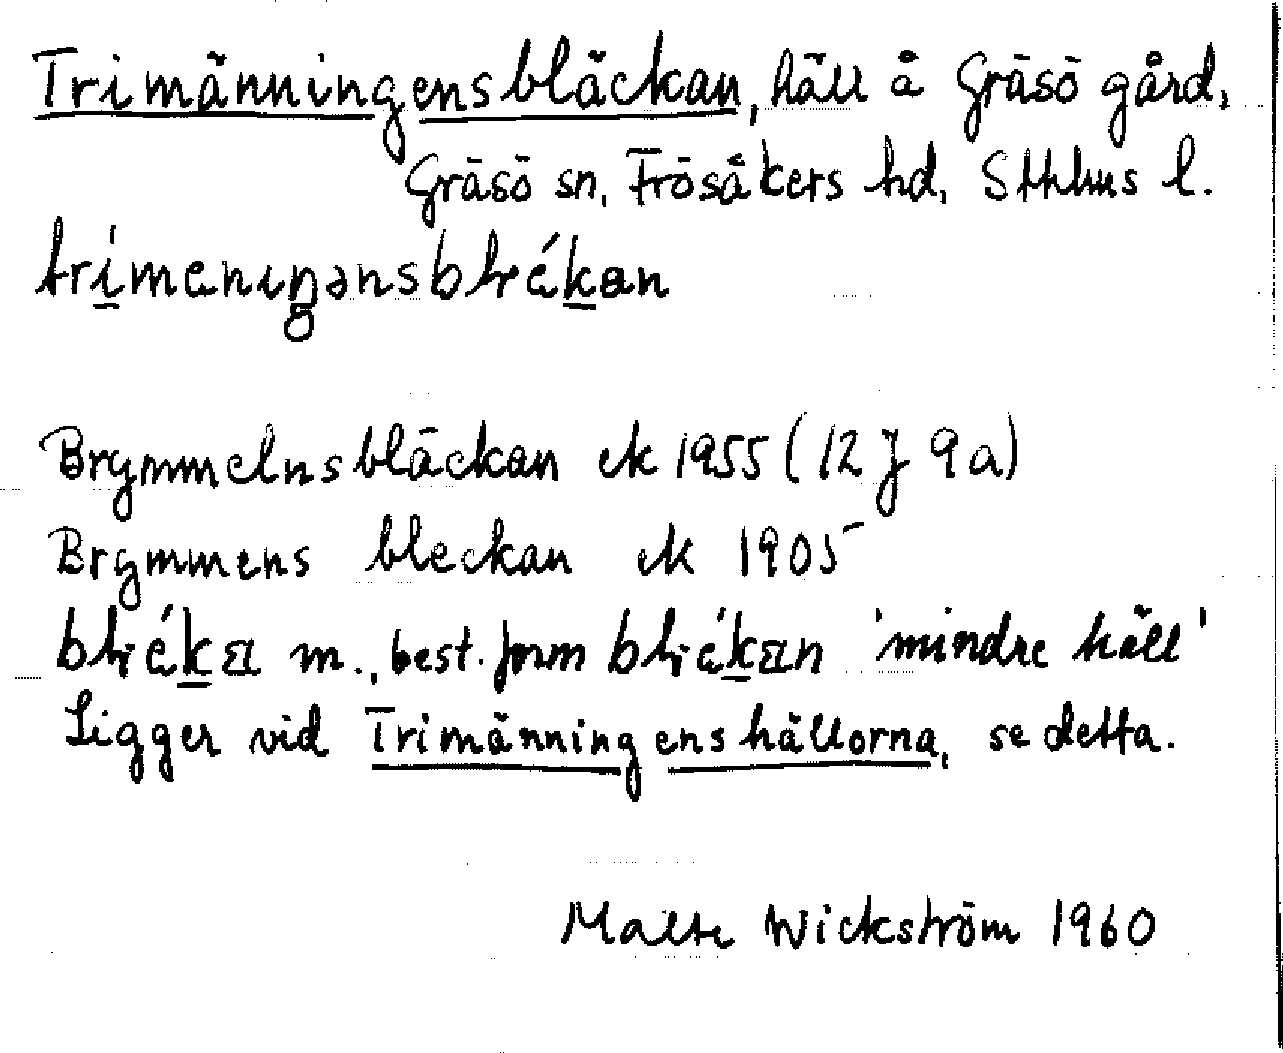 Trimänningensbläckan, häll å Gräsö gård,
Gräsö sn, Frösåkers hd, Sthlms l.
trímenıŋənsbłiékan
Brymmelnsbläckan ek 1955 (12 J 9a)
Brymmens bleckan ek 1905
błiéka m., best. form błiékan 'mindre häll'
Ligger vid Trimänningenshällorna, se detta.
Malte Wickström 1960